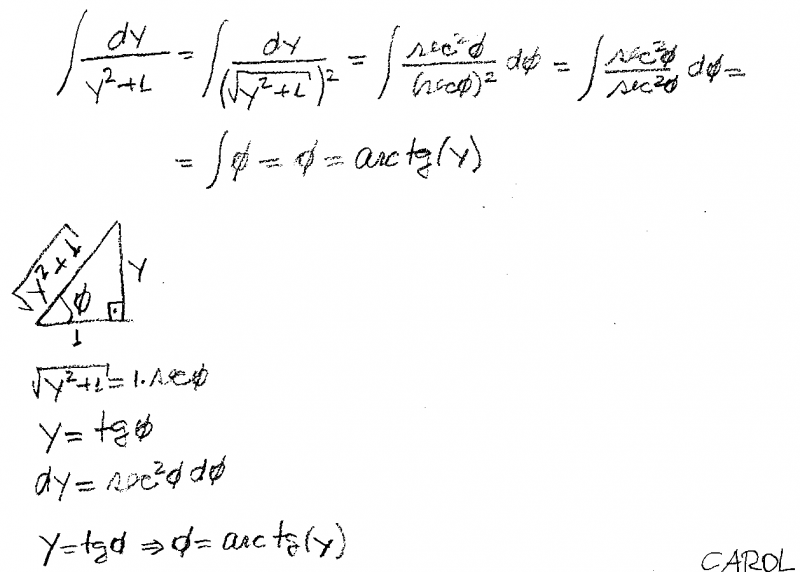 ∫ dy/(y²+1) = ∫ dy/(√(y²+1))² = ∫ sec²ϕ/(secϕ)² dϕ = ∫ sec²ϕ/sec²ϕ dϕ =
= ∫ϕ = ϕ = arc tg(y)
√(y²+1)
y
ϕ
1
√(y²+1) = 1.secϕ
y = tgϕ
dy = sec²ϕ dϕ
y = tgϕ ⇒ ϕ = arc tg(y)
CAROL